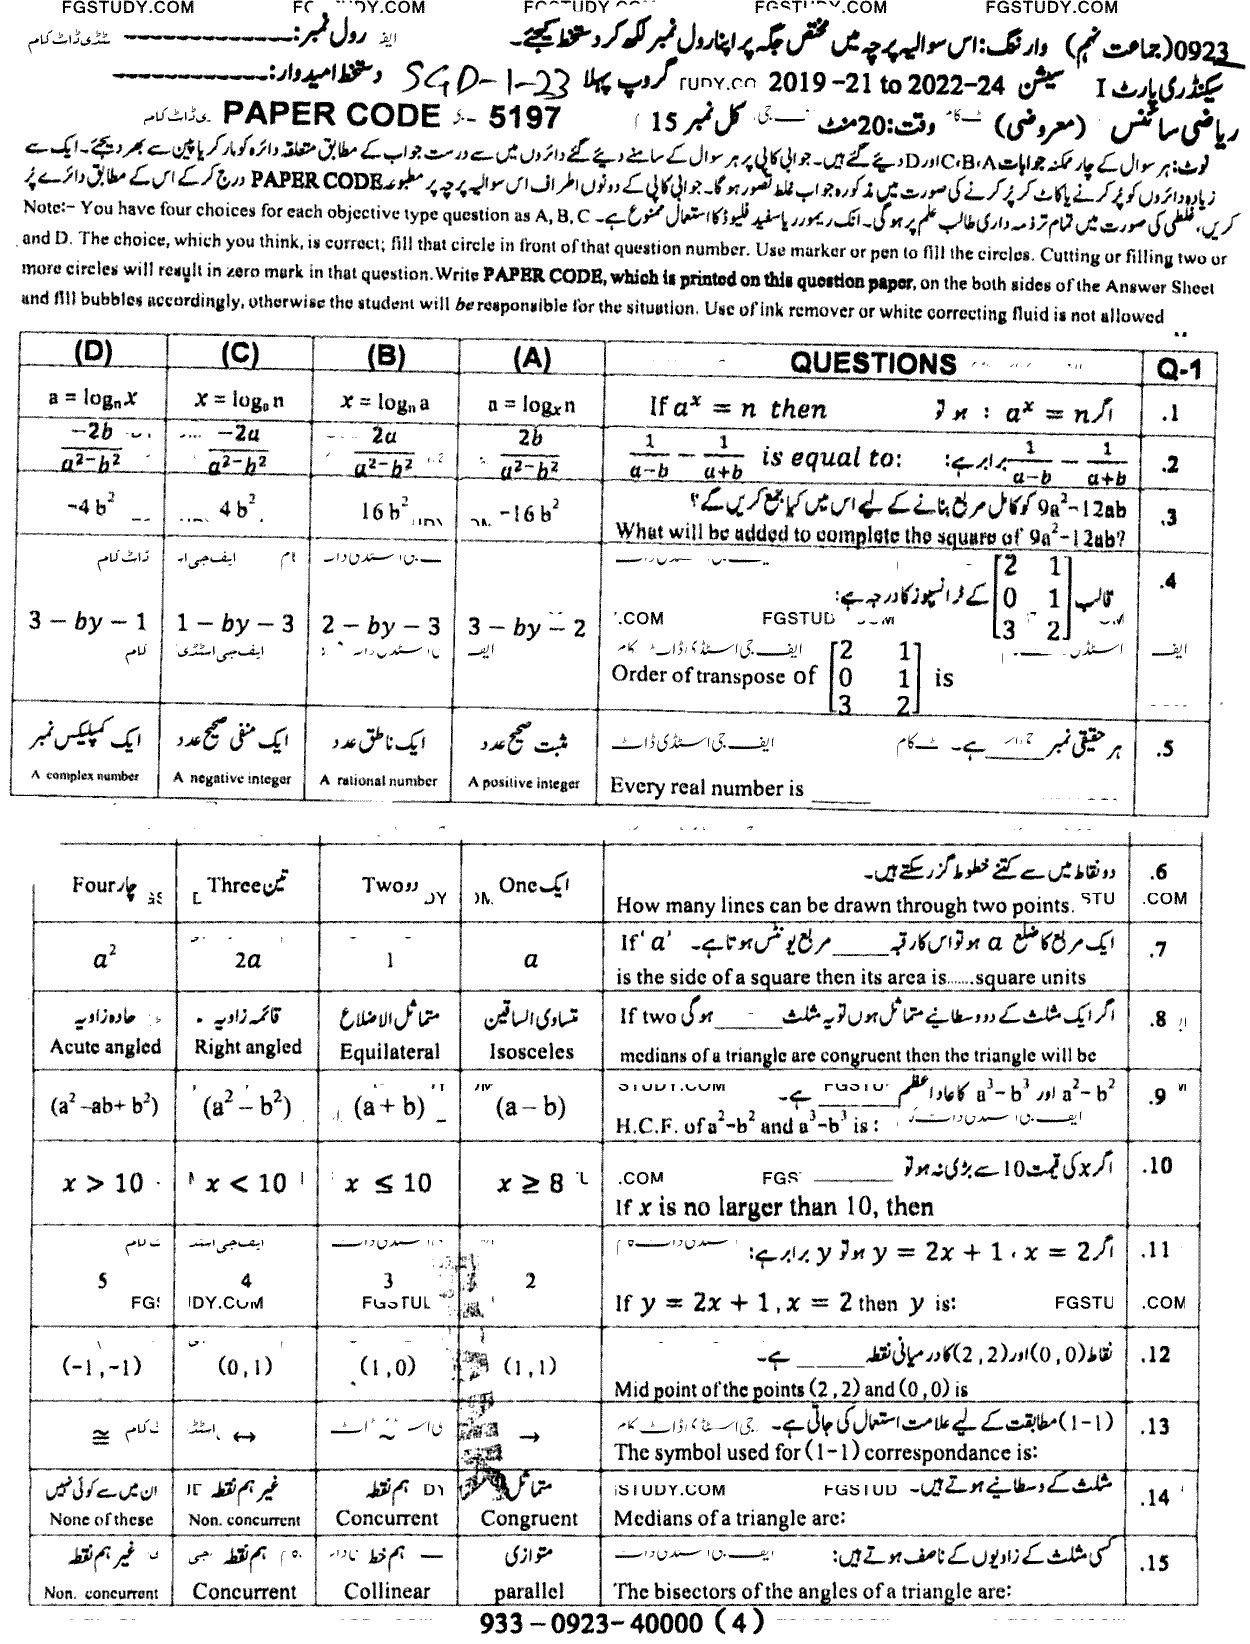 FGSTUDY.COM FGSTUDY.COM FGSTUDY.COM FGSTUDY.COM
0923(جماعت نہم) وارننگ: اس سوالیہ پرچہ میں مختص جگہ پر اپنا رول نمبر لکھ کر دستخط کیجئے۔ رول نمبر:
سیکنڈری پارٹ I سیشن 2019 -21 to 2022-24 گروپ پہلا SGD-1-23 دستخط امیدوار:
ریاضی سائنس (معروضی) وقت:20منٹ کل نمبر 15 PAPER CODE 5197
نوٹ: ہر سوال کے چار ممکنہ جوابات C،B،A اور D دیئے گئے ہیں۔ جوابی کاپی پر ہر سوال کے سامنے دیئے گئے دائروں میں سے درست جواب کے مطابق متعلقہ دائرہ کو مارکر یا پین سے بھر دیجئے۔ ایک سے
زیادہ دائروں کو پر کرنے یا کاٹ کر پر کرنے کی صورت میں مذکورہ جواب غلط تصور ہوگا۔ جوابی کاپی کے دونوں اطراف اس سوالیہ پرچہ پر مطبوعہ PAPER CODE درج کر کے اس کے مطابق دائرے پر
کریں، غلطی کی صورت میں تمام تر ذمہ داری طالب علم پر ہوگی۔ انک ریمور یا سفید فلیوڈ کا استعمال ممنوع ہے۔ Note:- You have four choices for each objective type question as A, B, C
and D. The choice, which you think, is correct; fill that circle in front of that question number. Use marker or pen to fill the circles. Cutting or filling two or
more circles will result in zero mark in that question. Write PAPER CODE, which is printed on this question paper, on the both sides of the Answer Sheet
and fill bubbles accordingly, otherwise the student will be responsible for the situation. Use of ink remover or white correcting fluid is not allowed
(D) (C) (B) (A) QUESTIONS Q-1
a = logₙ x x = logₐ n x = logₙ a a = logₓ n If aˣ = n then اگر aˣ = n : تو .1
-2b/(a²-b²) -2a/(a²-b²) 2a/(a²-b²) 2b/(a²-b²) 1/(a-b) - 1/(a+b) is equal to: برابر ہے: 1/(a-b) - 1/(a+b) .2
-4b² 4b² 16b² -16b² 9a²-12ab کو کامل مربع بنانے کے لیے اس میں کیا جمع کریں گے؟ .3
What will be added to complete the square of 9a²-12ab?
3 - by - 1 1 - by - 3 2 - by - 3 3 - by - 2 قالب [2 1; 0 1; 3 2] کے ٹرانسپوز کا درجہ ہے: .4
Order of transpose of [2 1; 0 1; 3 2] is
ایک کمپلیکس نمبر ایک منفی صحیح عدد ایک ناطق عدد مثبت صحیح عدد ہر حقیقی نمبر ____ ہے۔ .5
A complex number A negative integer A rational number A positive integer Every real number is ____
Four چار Three تین Two دو One ایک دو نقاط میں سے کتنے خطوط گزر سکتے ہیں۔ .6
How many lines can be drawn through two points.
a² 2a 1 a ایک مربع کا ضلع a ہو تو اس کا رقبہ ____ مربع یونٹس ہوتا ہے۔ If 'a' .7
is the side of a square then its area is.......square units
حادہ زاویہ قائمہ زاویہ متماثل الاضلاع متساوی الساقین اگر ایک مثلث کے دو وسطانیے متماثل ہوں تو یہ مثلث ____ ہوگی If two .8
Acute angled Right angled Equilateral Isosceles medians of a triangle are congruent then the triangle will be
(a²-ab+b²) (a²-b²) (a+b) (a-b) a²-b² اور a³-b³ کا عاد اعظم ____ ہے۔ .9
H.C.F. of a²-b² and a³-b³ is :
x > 10 x < 10 x ≤ 10 x ≥ 8 اگر x کی قیمت 10 سے بڑی نہ ہو تو ____ .10
If x is no larger than 10, then
5 4 3 2 اگر y = 2x + 1 ، x = 2 ہو تو y برابر ہے: .11
If y = 2x + 1 , x = 2 then y is:
(-1,-1) (0,1) (1,0) (1,1) نقاط (0,0) اور (2,2) کا درمیانی نقطہ ____ ہے۔ .12
Mid point of the points (2,2) and (0,0) is
≅ ↔ ~ → (1-1) مطابقت کے لیے علامت استعمال کی جاتی ہے۔ .13
The symbol used for (1-1) correspondance is:
ان میں سے کوئی نہیں غیر ہم نقطہ ہم نقطہ متماثل مثلث کے وسطانیے ہوتے ہیں۔ .14
None of these Non. concurrent Concurrent Congruent Medians of a triangle are:
غیر ہم نقطہ ہم نقطہ ہم خط متوازی کسی مثلث کے زاویوں کے ناصف ہوتے ہیں: .15
Non. concurrent Concurrent Collinear parallel The bisectors of the angles of a triangle are:
933-0923-40000 (4)